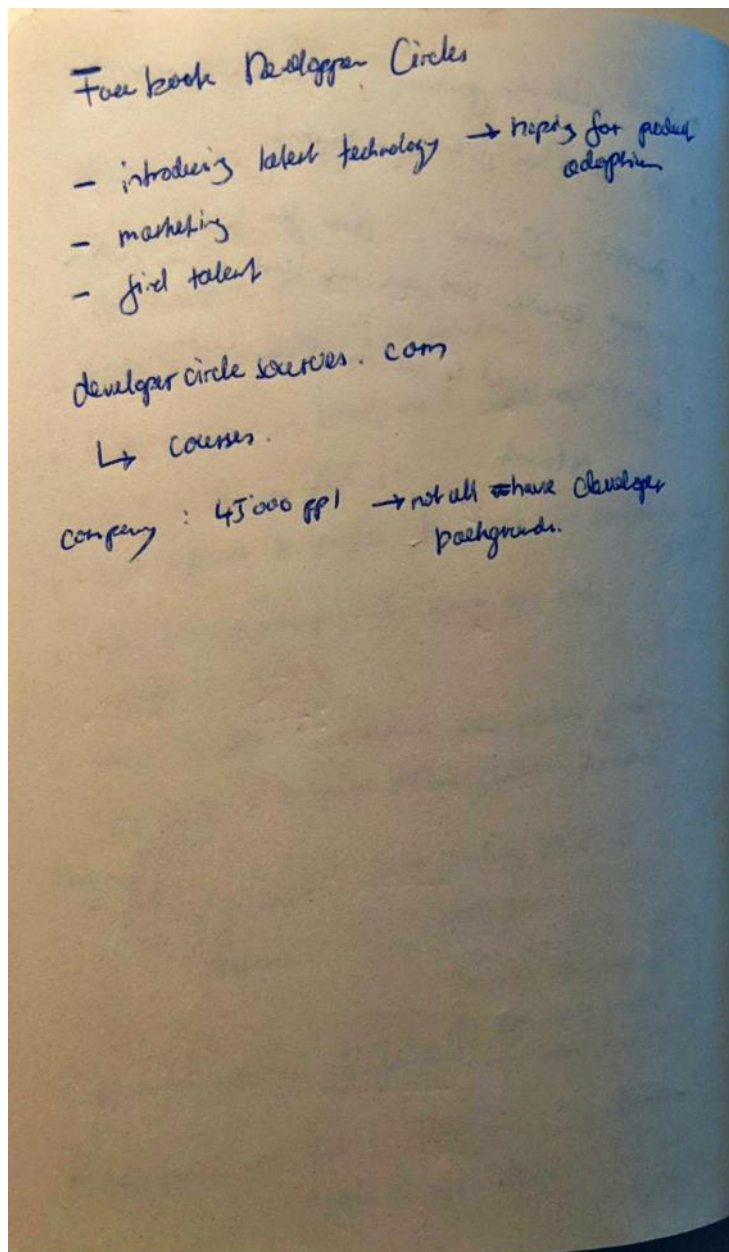 Facebook Developper Circles
- introducing latest technology → hoping for product
adoption
- marketing
- find talent
developercirclesources.com
↳ courses.
company : 45'000 ppl → not all have developer
backgrounds.